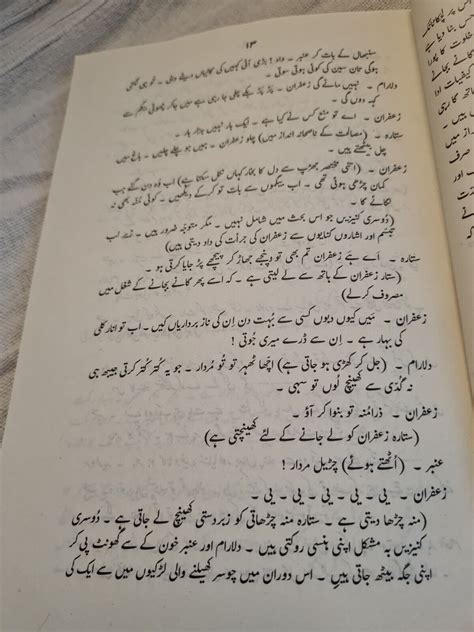 ۱۳
سنبھال کے بات کر عنبر ۔ واہ ! بڑی آئی کہیں کی گالیاں دینے والی ۔ تو ہی گھٹی
ہوگی تان سین کی کوئی ہوتی سوتی ۔
دلارام ۔ نہیں مانے گی زعفران ۔ پٹر پٹر بکے چلی جا رہی ہے میں جاکر چھوٹی بیگم سے
کہہ دوں گی ۔
زعفران ۔ اے تو منع کس نے کیا ہے ۔ ایک بار نہیں ہزار بار ۔
ستارہ ۔ (مصالحت کے ناصحانہ انداز میں) چلو زعفران ۔ ہمیں ہو چلے چلیں ۔ باغ میں
چل بیٹھتے ہیں ۔
زعفران ۔ (اتنی مختصر جھڑپ سے دل کا بخار کہاں نکل سکتا ہے) اب وہ دن گئے جب
کمان چڑھی ہوئی تھی ۔ اب بیگموں سے بات تو کرکے دیکھیں ۔ کوئی منہ بھی نہ
لگائے گا ۔
(دوسری کنیزیں جو اس بحث میں شامل نہیں ۔ مگر متوجہ ضرور ہیں ۔ تحت لب
تبسّم اور اشاروں کنایوں سے زعفران کی جرأت کی داد دیتی ہیں)
ستارہ ۔ اَے ہَے زعفران تم بھی تو پنجے جھاڑ کر پیچھے پڑ جایا کرتی ہو ۔
(ستار زعفران کے ہاتھ سے لے لیتی ہے ۔ کہ اسے پھر گانے بجانے کے شغل میں
مصروف کرلے)
زعفران ۔ مَیں کیوں دبوں کسی سے بُہت دن اِن کی ناز برداریاں کیں ۔ اب تو انارکلی
کی بہار ہے ۔ اِن سے ڈرے میری جُوتی !
دلارام ۔ (جل کر کھڑی ہو جاتی ہے) اچھا ٹھہر تو تُو مُردار ۔ جو یہ کُتر کُتر کرتی جیبھ ہی
نہ گُدّی سے کھینچ لُوں تو سہی ۔
زعفران ۔ ذرا مُنہ تو بنوا کر آؤ ۔
(ستارہ زعفران کو لے جانے کے لئے کھینچتی ہے)
عنبر ۔ (اُٹھتے ہوئے) چڑیل مردار !
زعفران ۔ یی ۔ یی ۔ یی ۔ یی ۔ یی ۔
(منہ چڑھا دیتی ہے ۔ ستارہ منہ چڑھاتی کو زبردستی کھینچ لے جاتی ہے ۔ دُوسری
کنیزیں بہ مشکل اپنی ہنسی روکتی ہیں ۔ دلارام اور عنبر خون کے سے گھونٹ پی کر
اپنی جگہ بیٹھ جاتی ہیں ۔ اس دوران میں چوسر کھیلنے والی لڑکیوں میں سے ایک کی